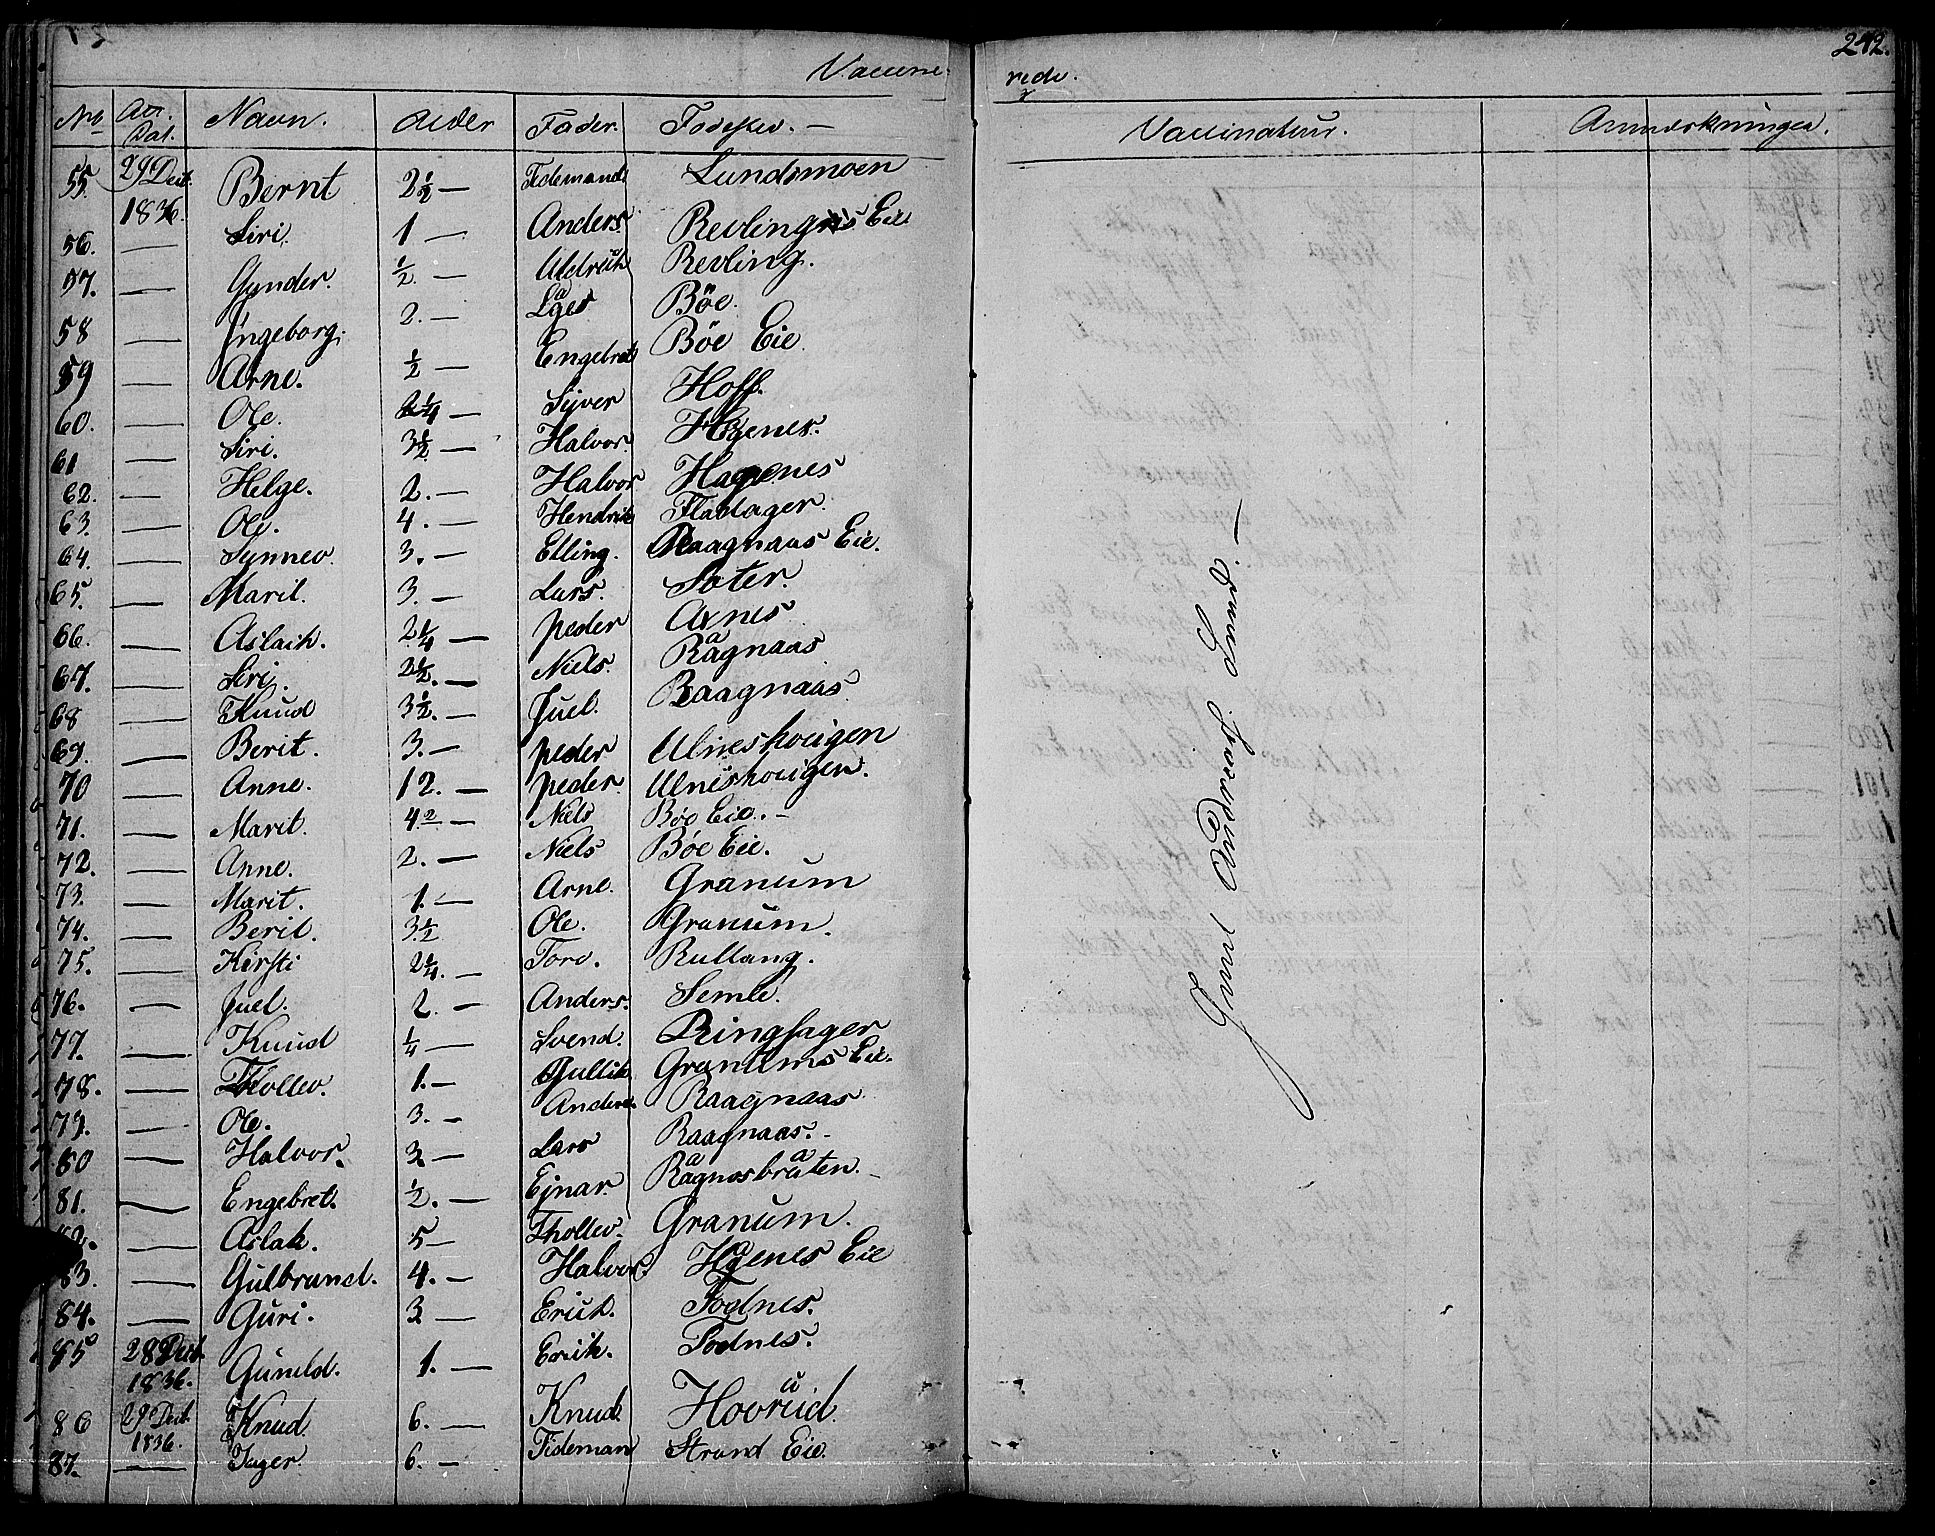 242.
Vaccine-
rede.
No Aar. Dat. Navn. Alder Fader. Fødested. —
Vaccinateur. Anmærkninger.
55. 29 Decb. 1836. Bernt 2½ — Tidemand Lundsmoen
56. — Siri. 1 — Anders. Revlings Eie
57. — Gunder. ½ — Revling.
58 — Ingeborg. 2. — Böe.
59 — Arne. ½ — Engebret Böe Eie
60. — Ole. — Syver Hoff.
61 — Siri. 3½ — Halvor.
62. — Helge. 2. — Halvor Hagenes
63. — Ole. 4. — Hendrik Fladager.
64. — Synnev. 3. — Elling. Raagnaas Eie.
65. — Marit. 3. — Lars. Sæter.
66. — Aslach. 2¼ — peder Axnes
67. — Siri. — Niels. Rågnaas
68 — Knud 3½. — Juel. Raagnaas
69. — Berit. 3. — peder Ulneshougen
70 — Anne. 12. — peder. Ulneshougen.
71. — Marit. — Niels Bøe Eie. —
72. — Anne. 2. — Niels Bøe Eie.
73. — Marit. 1. — Arne. Granum
74. — Berit. 3½ Ole. Granum.
75. — Kirsti 2¼. — Tore. Rustang.
76. — Juel. 2. — Anders. Semle.
77. — Knud ¼ — Svend. Ringsager
78. — Thollev. 1. — Gullik Granums Eie.
79. — Ole. 3. — Anders. Raagnaas
80 — Halvor. 3 — Lars Raagnaas. —
81. — Engebret. ½. — Ejnar. Rågnosbråten. —
82. — Aslak. 5 — Thollev. Granum.
83. — Gulbrand. 4. — Halvor. Hagenes Eie
84. — Guri. 3 — Erick. Fodnes.
85 28 Decb. 1836. Gunild. 1. — Erik. Fodnes.
86 29 Decb. 1836. Knud 6. — Knud. Hovrud.
87. — Inger. 6. — Tideman Strand Eie.
Juul Andreas. Lund. —